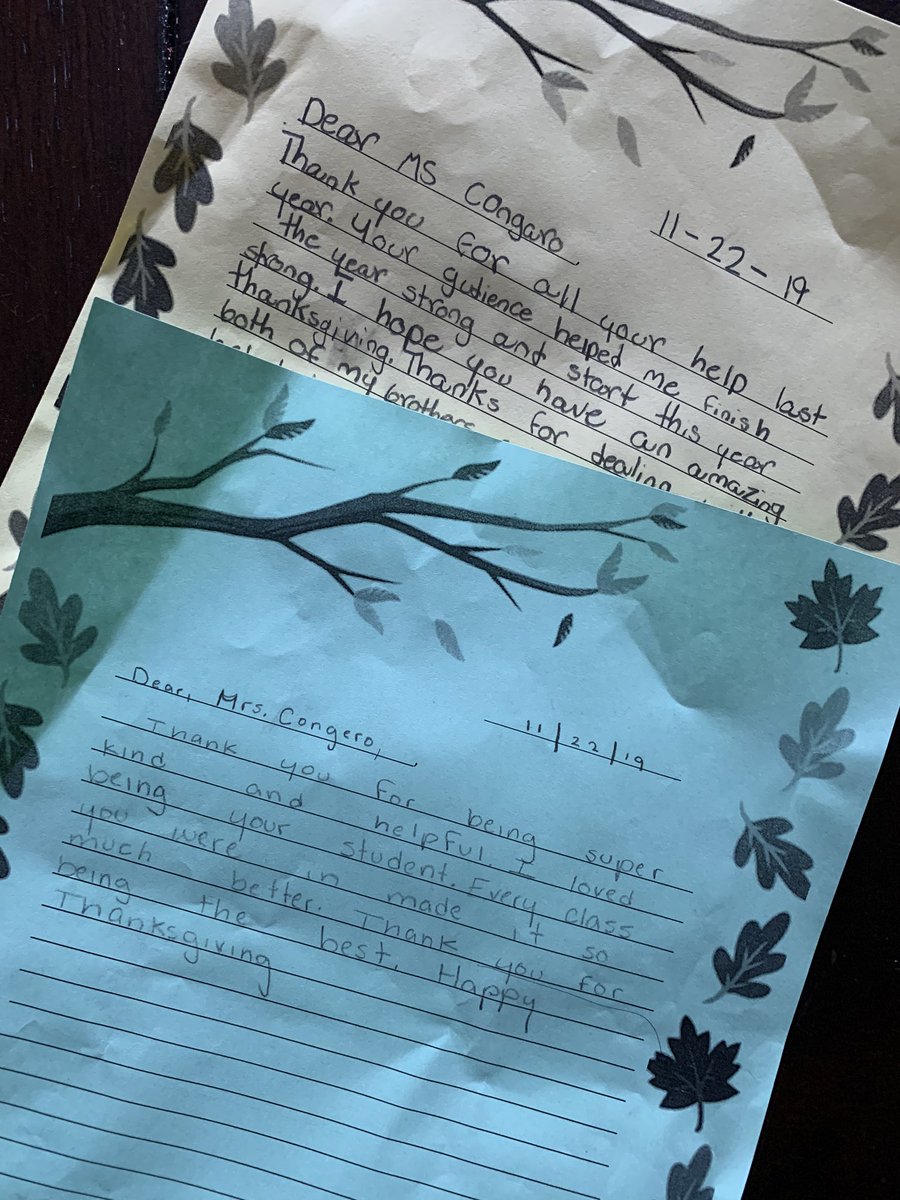 Dear MS Congaro
11-22-19
Thank you for all your help last
year. Your gudience helped me finish
the year strong and start this year
strong. I hope you have an amazing
thanksgiving. Thanks for dealing
both of my brothers
Dear, Mrs. Congero,
11/22/19
Thank you for being super
kind and helpful. I loved
being your student. Every class
you were in made it so
much better. Thank you for
being the best. Happy
Thanksgiving